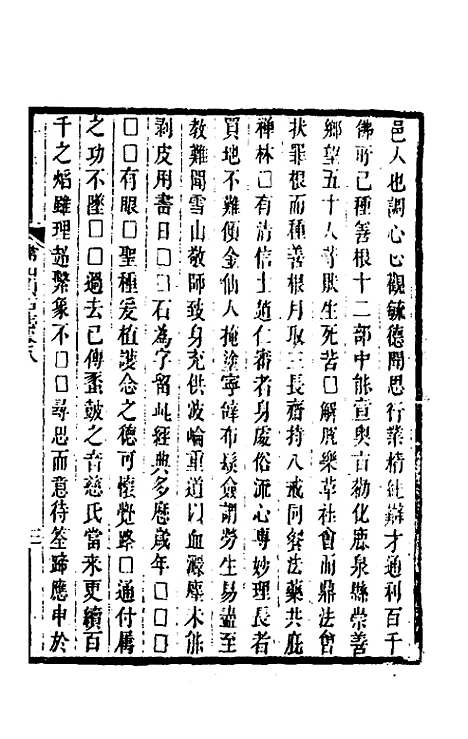 邑人也調心心觀毓德聞思行業精純辯才通利百千
佛所已種善根十二部中能宣奧旨勸化鹿泉縣崇善
鄉望五十人等厭生死苦□解脫樂草社會而鼎法會
狀罪根而種善根月取三長齋持八戒同餐法藥共庇
禪林□有清信士趙仁審者身處俗流心專妙理長者
買地不難傾金仙人掩塗寧解布髮僉謂勞生易盡至
教難聞雪山敬師致身充供波崙重道以血灑塵未能
剥皮用書日□□石為字留此經典多歷歲年□□□
□□有眼□聖種爰植護念之德可懷覺路□通付屬
之功不墜□□過去已傳塗皷之音慈氏當來更續百
千之焰雖理超繫象不□□尋思而意待筌蹄應申於
常山貞石志卷八
三